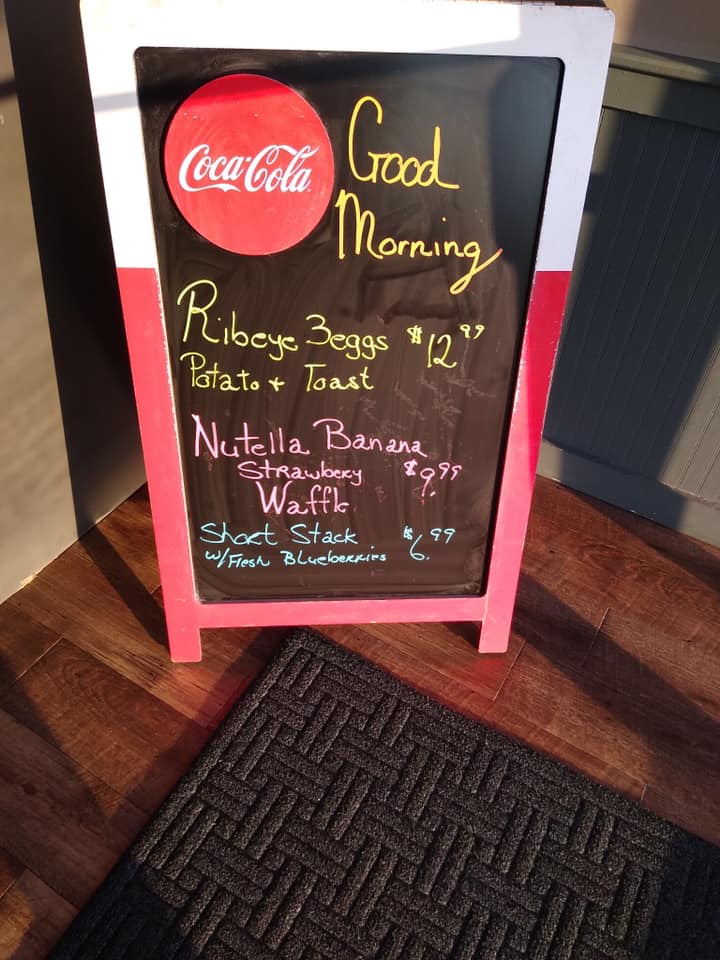 Coca-Cola
Good
Morning
Ribeye 3eggs $12.99
Potato + Toast
Nutella Banana
Strawberry $9.99
Waffle
Short Stack $6.99
w/Fresh Blueberries